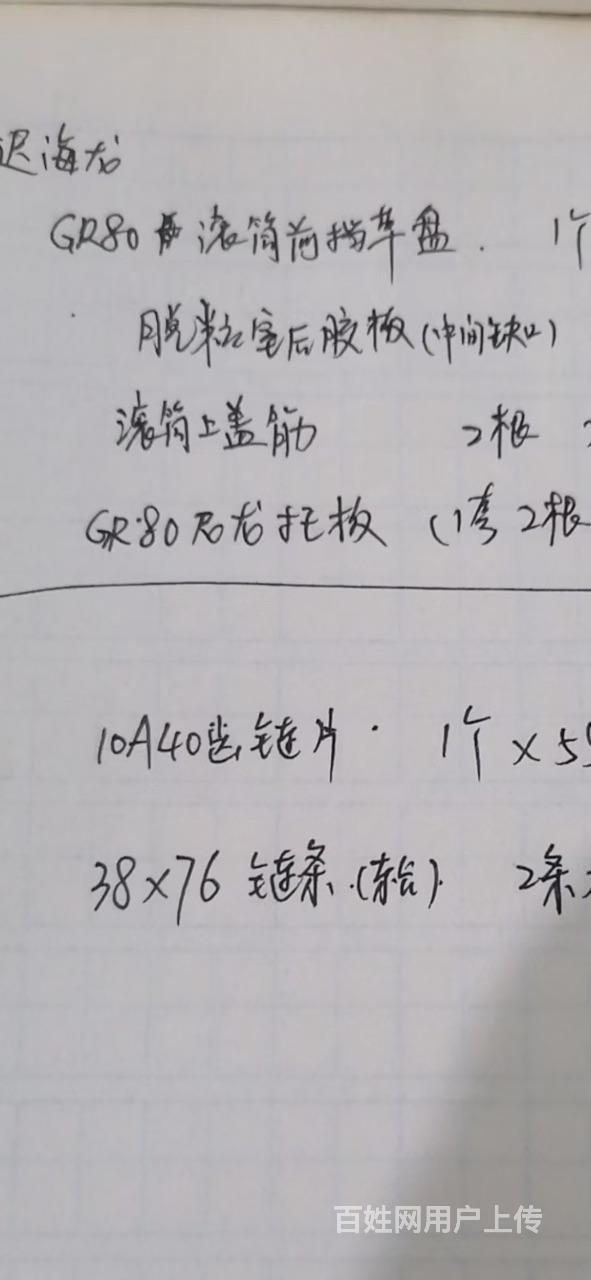 迟海龙
GR80 滚筒前挡草盘. 1个
脱粒室后胶板(中间缺口)
滚筒上盖筋 2根
GR80尼龙托板 (1套2根
10A40齿链片. 1个×55
38×76 链条.(东台). 2条
百姓网用户上传